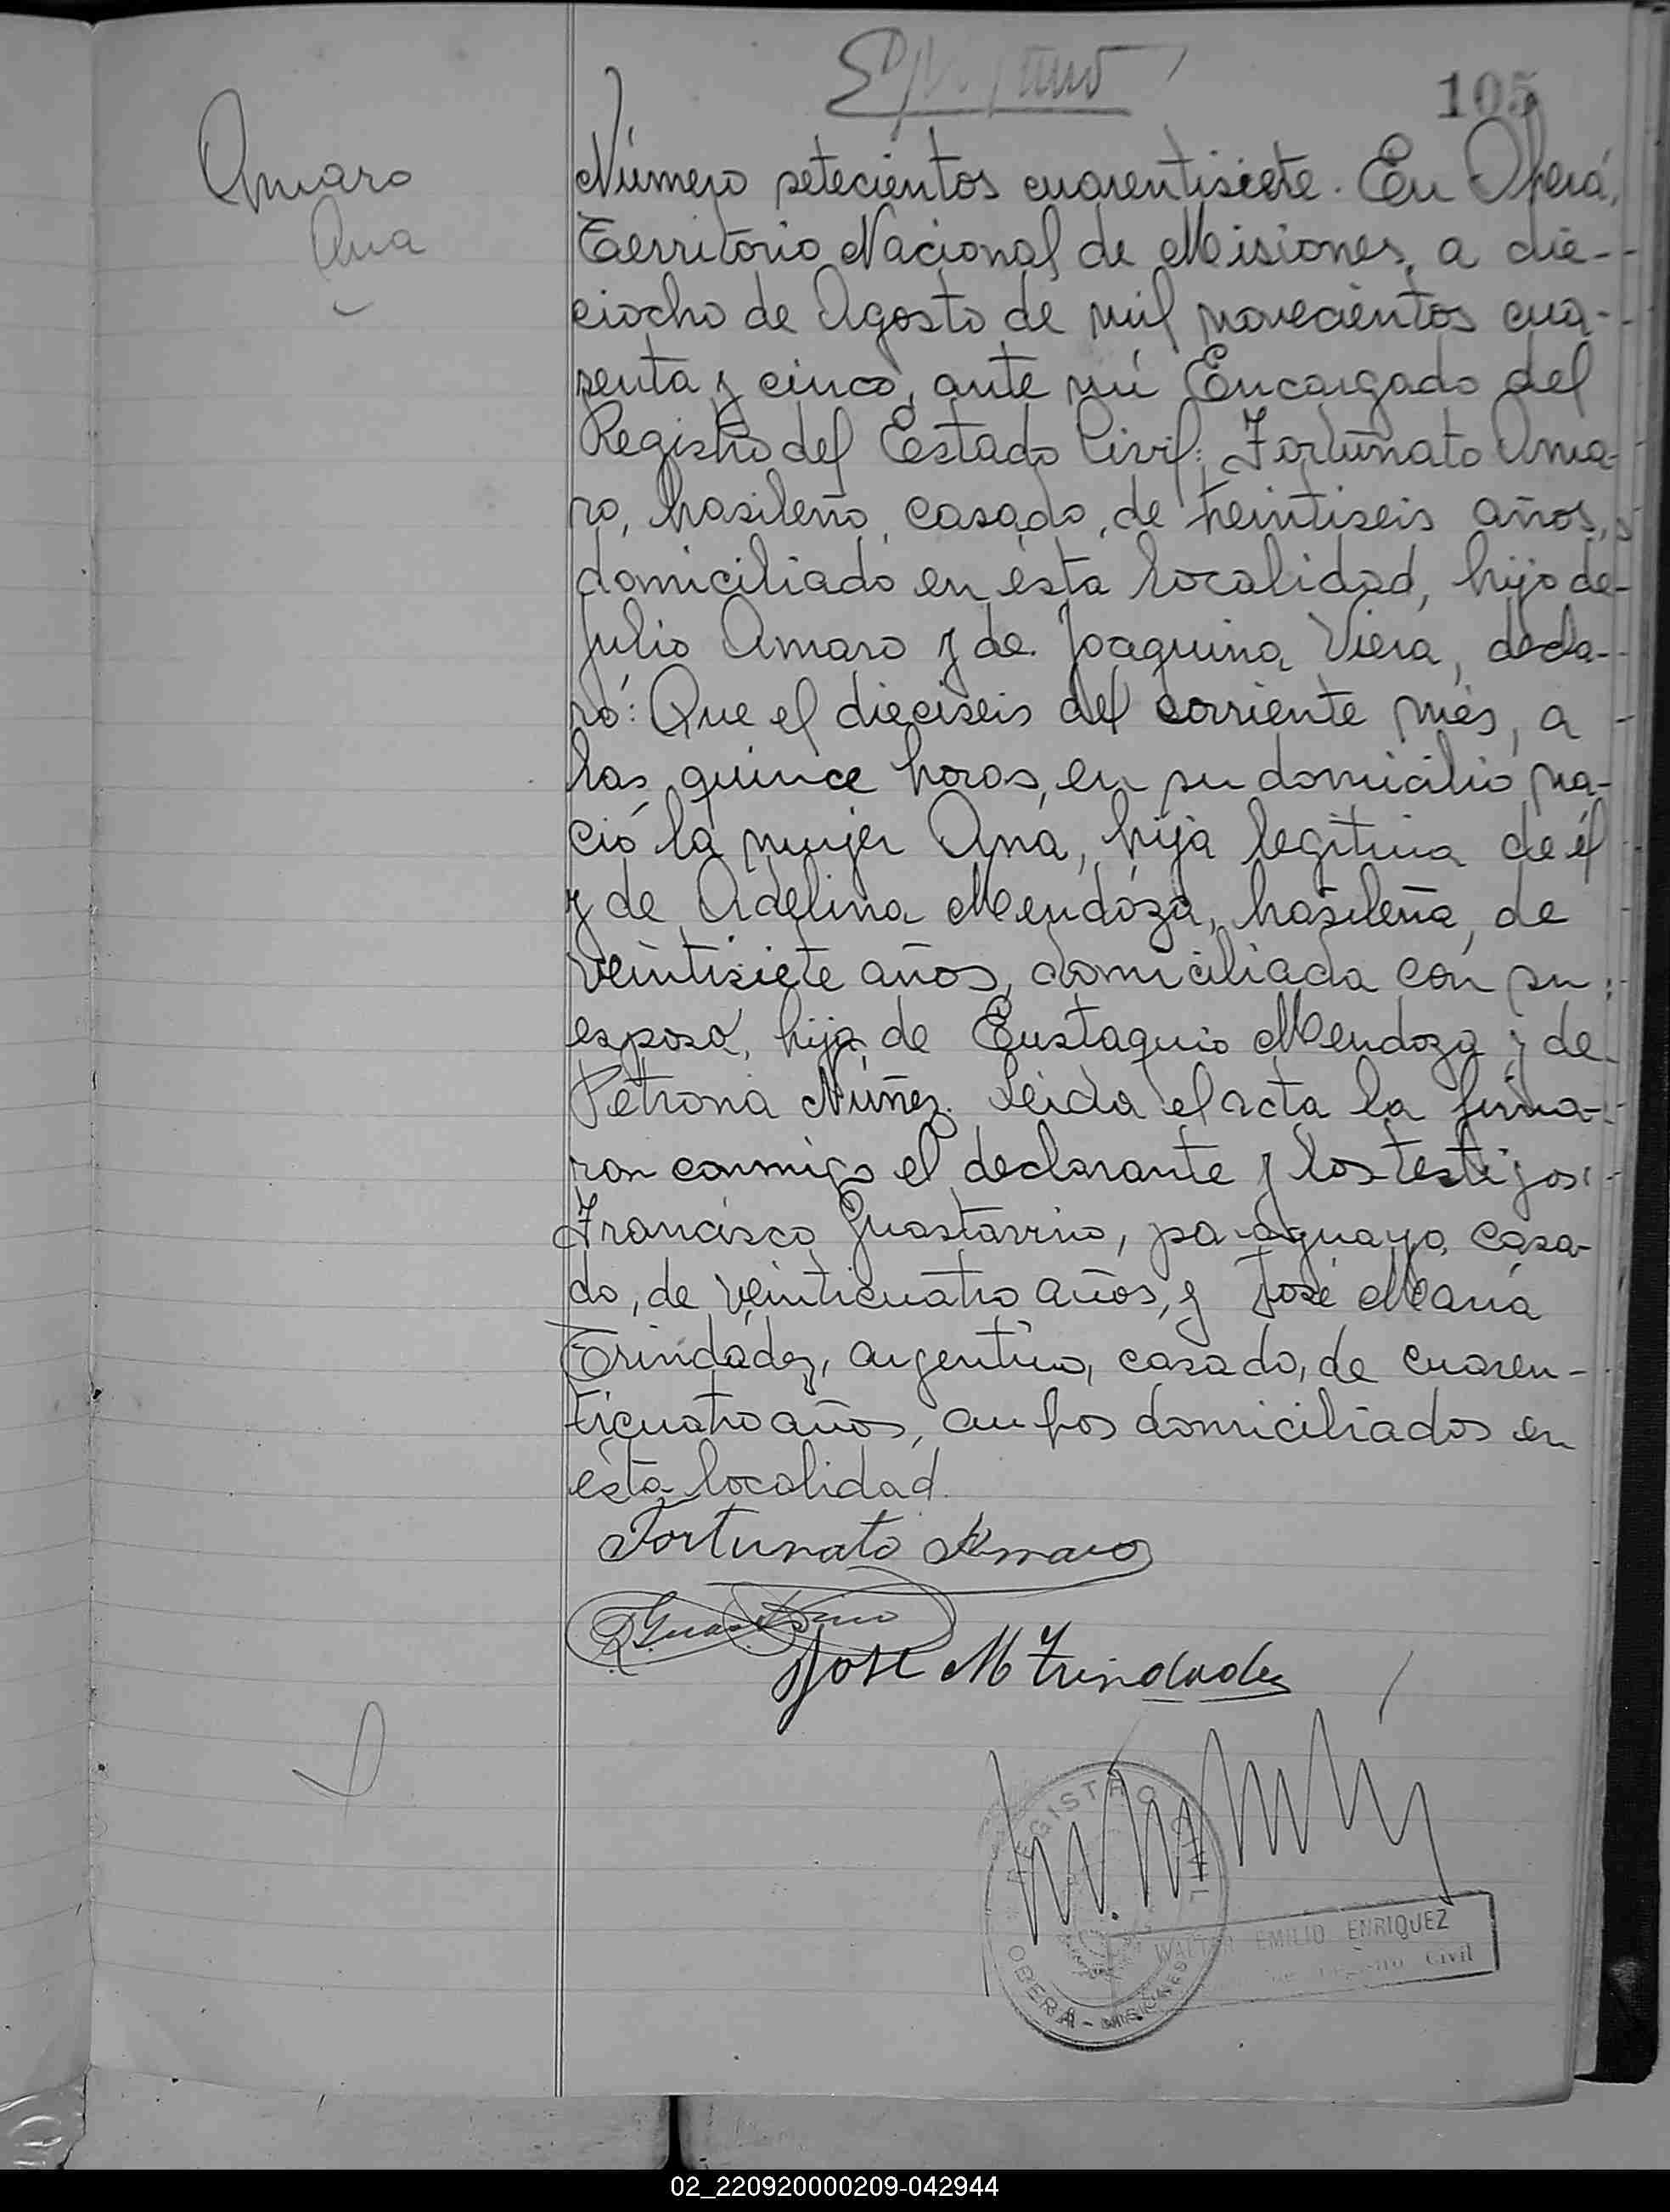 105
Amaro
Ana
Número setecientos cuarentisiete. En Oberá,
Territorio Nacional de Misiones, a die-
ciocho de Agosto de mil novecientos cua-
renta y cinco, ante mí Encargado del
Registro del Estado Civil: Fortunato Ama-
ro, brasileño, casado, de treintiseis años,
domiciliado en ésta localidad, hijo de
Julio Amaro y de Joaquina Viera, decla-
ró: Que el dieciseis del corriente més, a
las quince horas, en su domicilio na-
ció la mujer Ana, hija legítima de él
y de Adelina Mendoza, brasileña, de
veintisiete años, domiciliada con su
esposo, hija de Eustaquio Mendoza y de
Petrona Núñez. Leida el acta la firma-
ron conmigo el declarante y los testigos:
Francisco Guastavino, paraguayo, casa-
do, de veinticuatro años, y José María
Trindadez, argentino, casado, de cuaren-
ticuatro años, ambos domiciliados en
ésta localidad.
Fortunato Amaro
José M Trindadez
REGISTRO CIVIL
OBERÁ - MISIONES
WALTER EMILIO ENRIQUEZ
Civil
02_220920000209-042944